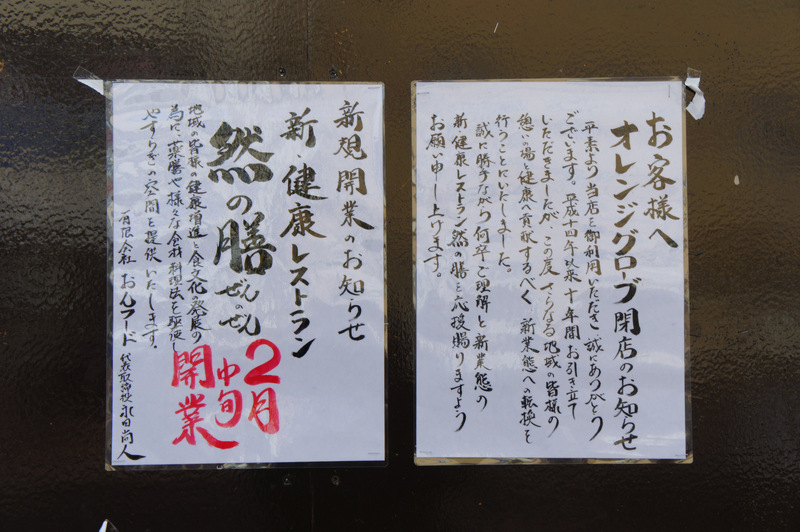 お客様へ
オレンジグローブ閉店のお知らせ
平素より当店を御利用いただき誠にありがとう
ございます。平成十四年以来十年間お引き立て
いただきましたが、この度さらなる地域の皆様の
憩いの場と健康へ貢献するべく新業態への転換を
行うことにいたしました。
誠に勝手ながら何卒ご理解と新業態の
新・健康レストラン然の膳を応援賜りますよう
お願い申し上げます。
新規開業のお知らせ
新・健康レストラン
然の膳
ぜんのぜん
2月
中旬
開業
地域の皆様の健康増進と食文化の発展の
為に、薬膳や様々な食材料理法を駆使し
やすらぎの空間を提供いたします。
有限会社 おんフード 代表取締役 永田尚人